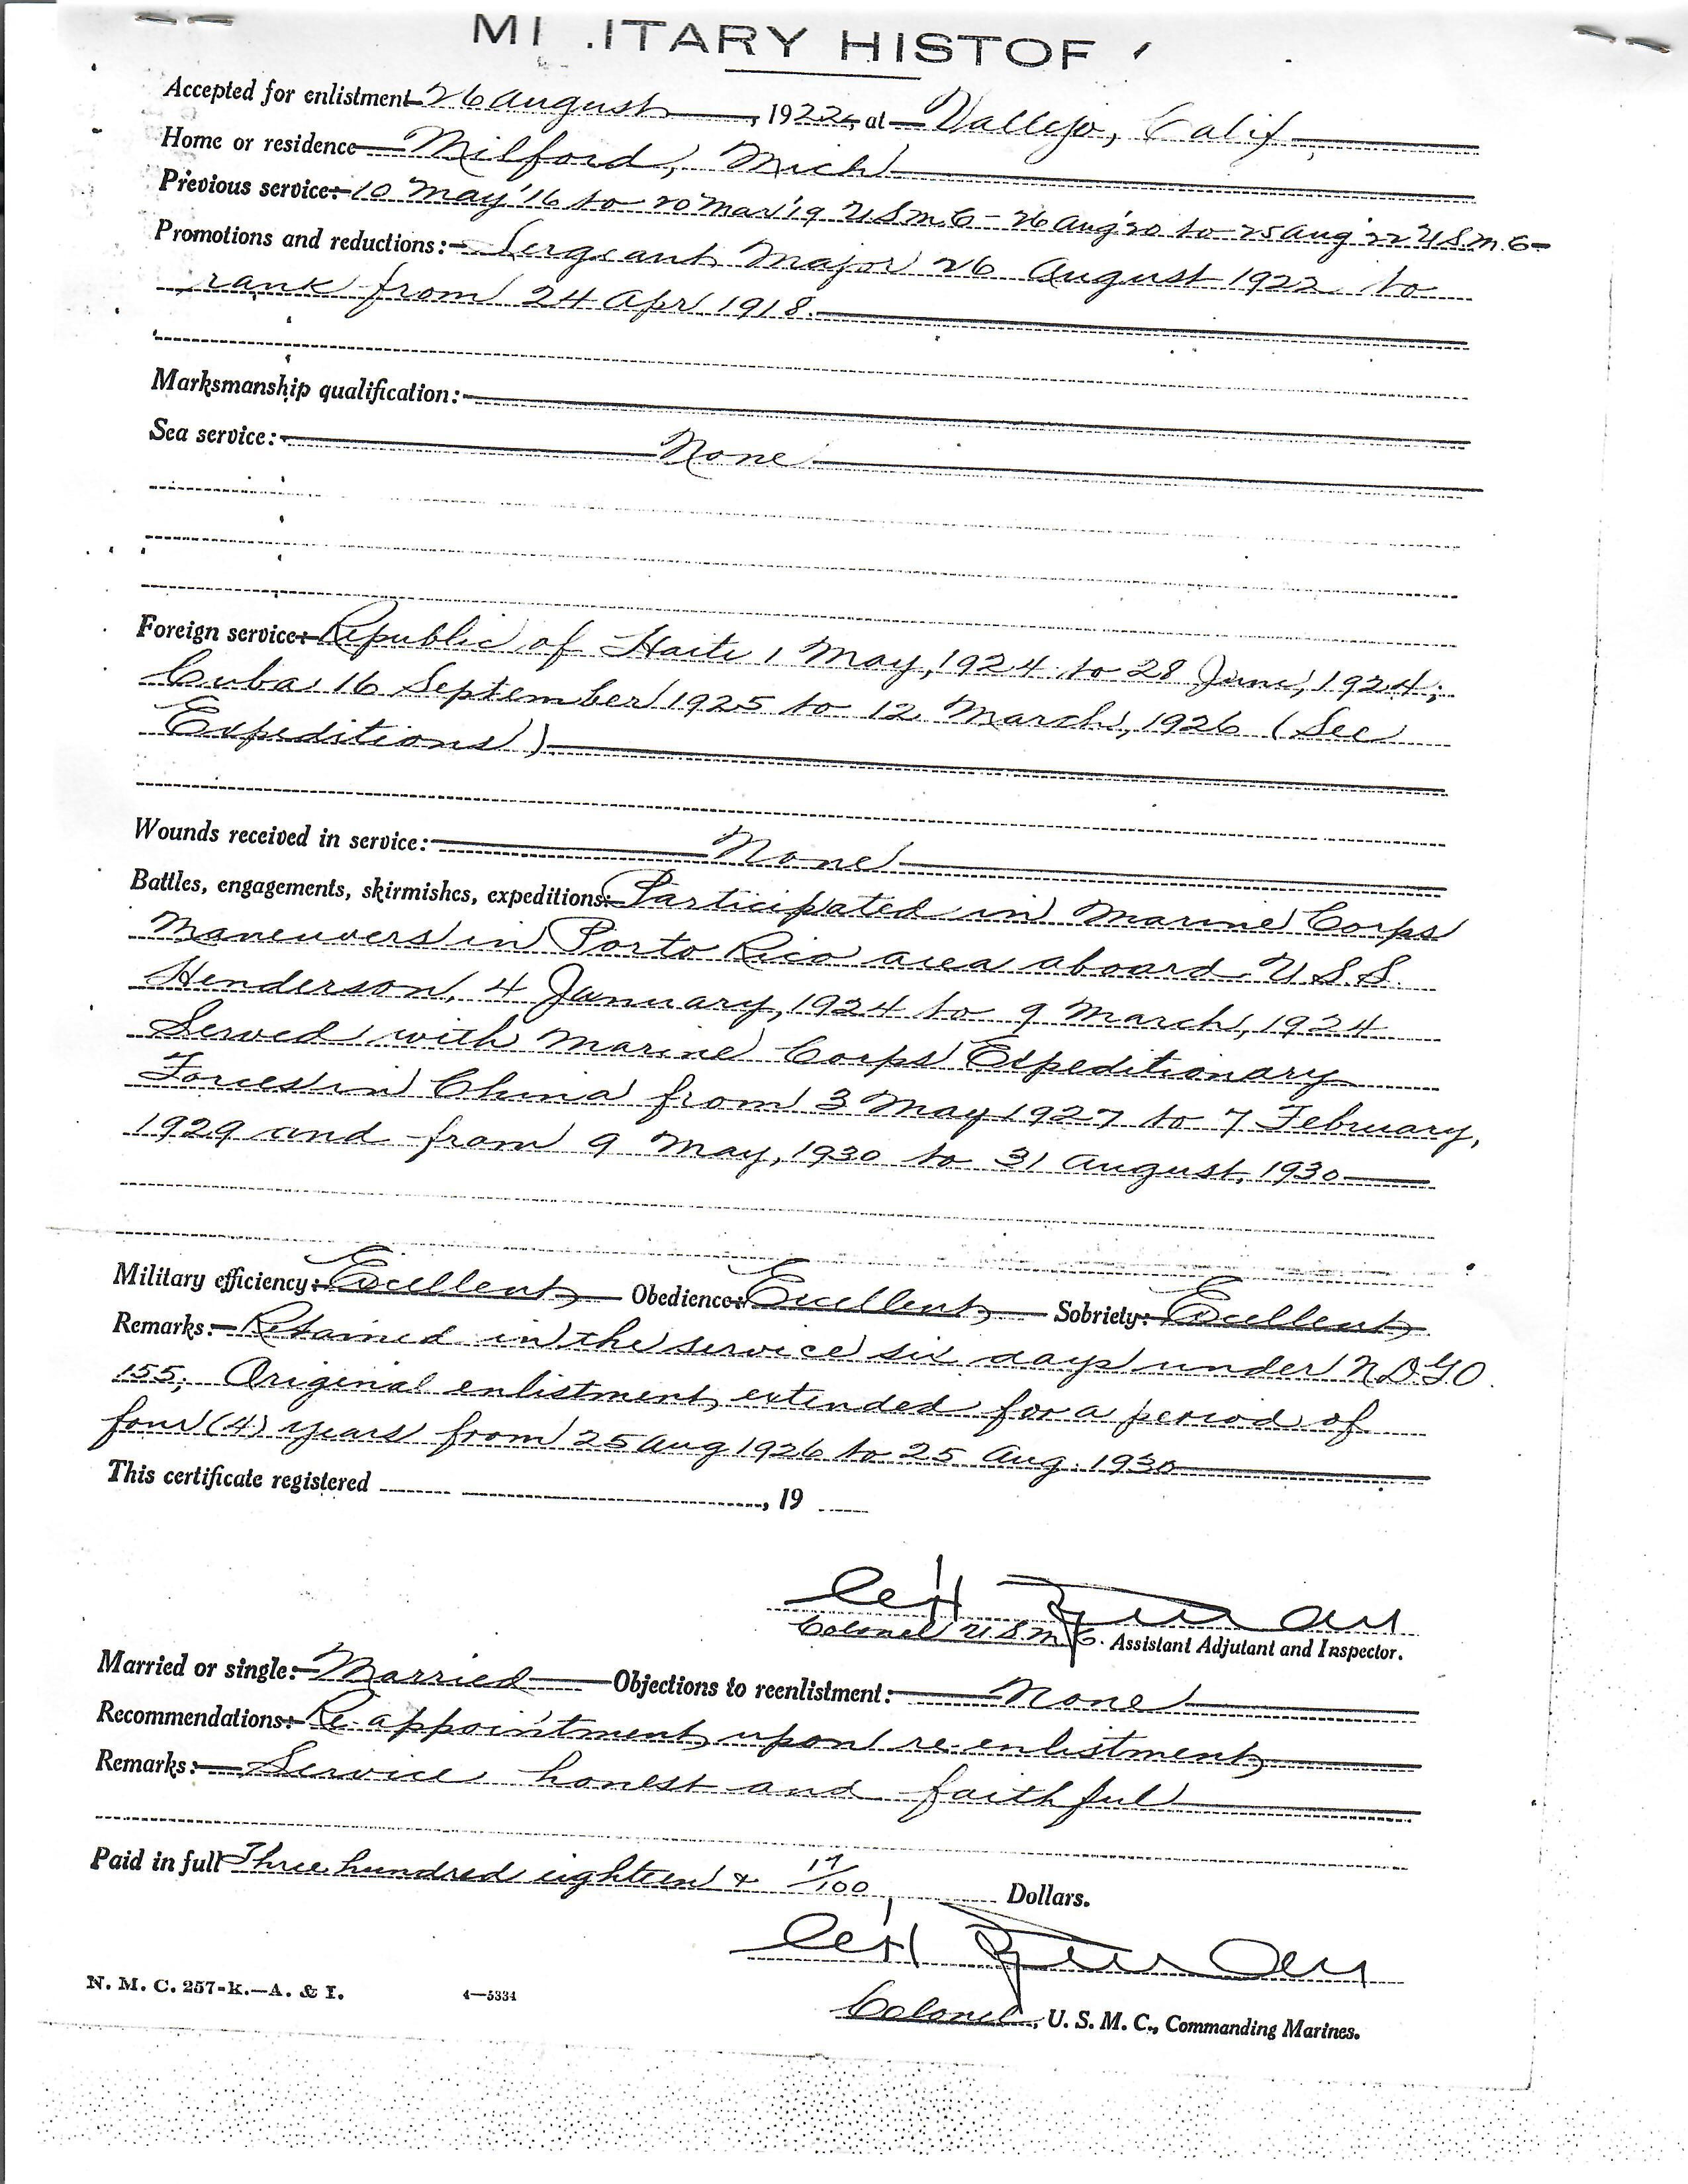 MI .ITARY HISTOF
Accepted for enlistment 26 August, 1922, at Vallejo, Calif.
Home or residence Milford, Mich
Previous service: 10 May '16 to 20 Mar '19 U S M C - 26 Aug '20 to 25 Aug '22 U.S.M.C-
Promotions and reductions: Sergeant Major 26 August 1922 to
rank from 24 Apr 1918.
Marksmanship qualification:
Sea service: None
Foreign service: Republic of Haiti 1 May, 1924 to 28 June, 1924;
Cuba 16 September 1925 to 12 March, 1926 (See
Expeditions)
Wounds received in service: None
Battles, engagements, skirmishes, expeditions: Participated in Marine Corps
Maneuvers in Porto Rico area aboard U.S.S.
Henderson, 4 January, 1924 to 9 March, 1924
Served with Marine Corps Expeditionary
Forces in China from 3 May 1927 to 7 February,
1929 and from 9 May, 1930 to 31 August, 1930
Military efficiency: Excellent Obedience: Excellent Sobriety: Excellent
Remarks: Retained in the service six days under N.D.G.O.
155; Original enlistment extended for a period of
four (4) years from 25 Aug 1926 to 25 Aug. 1930
This certificate registered , 19
Colonel U.S.M.C. Assistant Adjutant and Inspector.
Married or single: Married Objections to reenlistment: None
Recommendations: Re-appointment upon re-enlistment
Remarks: Service honest and faithful
Paid in full Three hundred eighteen & 17/100 Dollars.
Colonel, U. S. M. C., Commanding Marines.
N. M. C. 257-k.—A. & I. 4—5334